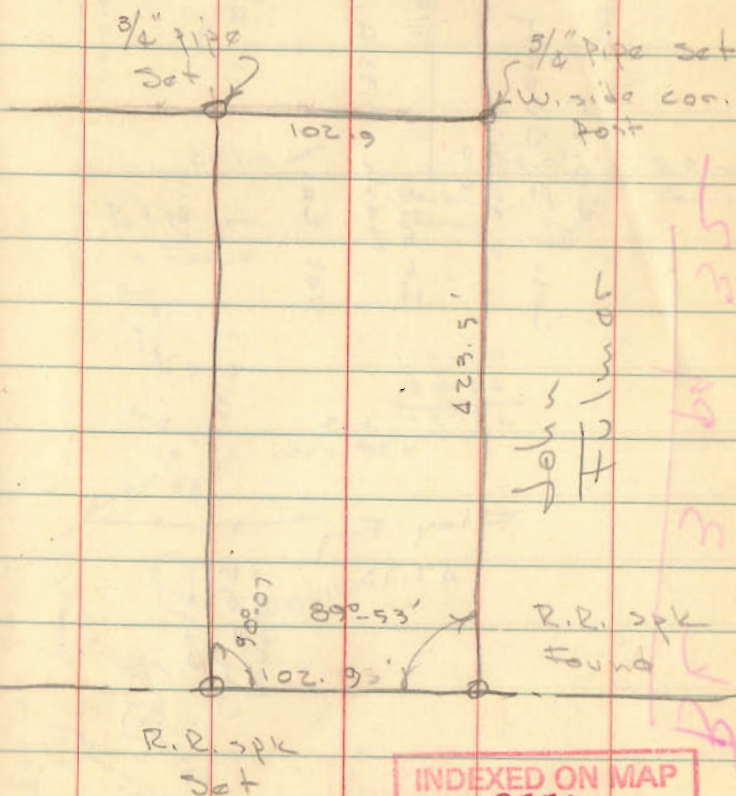 3/4" pipe
Set
3/4" pipe set
W. side cor.
post
102.9
423.5'
John
Fulmer
90°-07
89°-53'
102.95'
R.R. spk
found
R.R. spk
set
INDEXED ON MAP